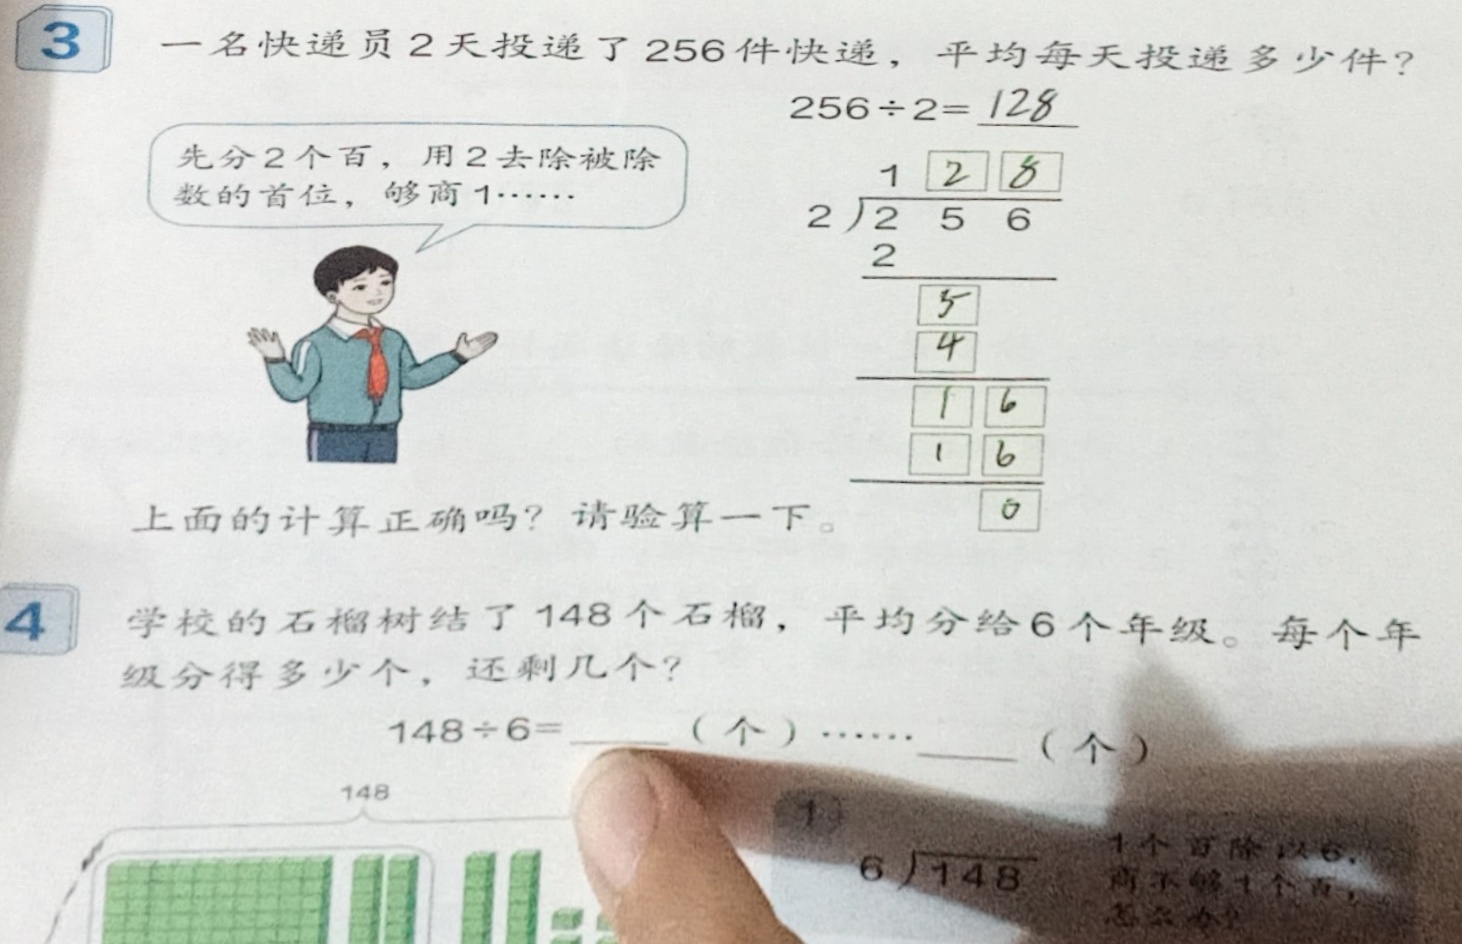 3
一名快递员2天投递了256件快递，平均每天投递多少件？
256÷2=128
先分2个百，用2去除被除
数的首位，够商1……
1 2 8
2)2 5 6
2
5
4
1 6
1 6
0
上面的计算正确吗？请验算一下。
4
学校的石榴树结了148个石榴，平均分给6个年级。每个年
级分得多少个，还剩几个？
148÷6=____（个）……____（个）
148
1
6)148
1个百除以6，
商不够1个百，
怎么办？